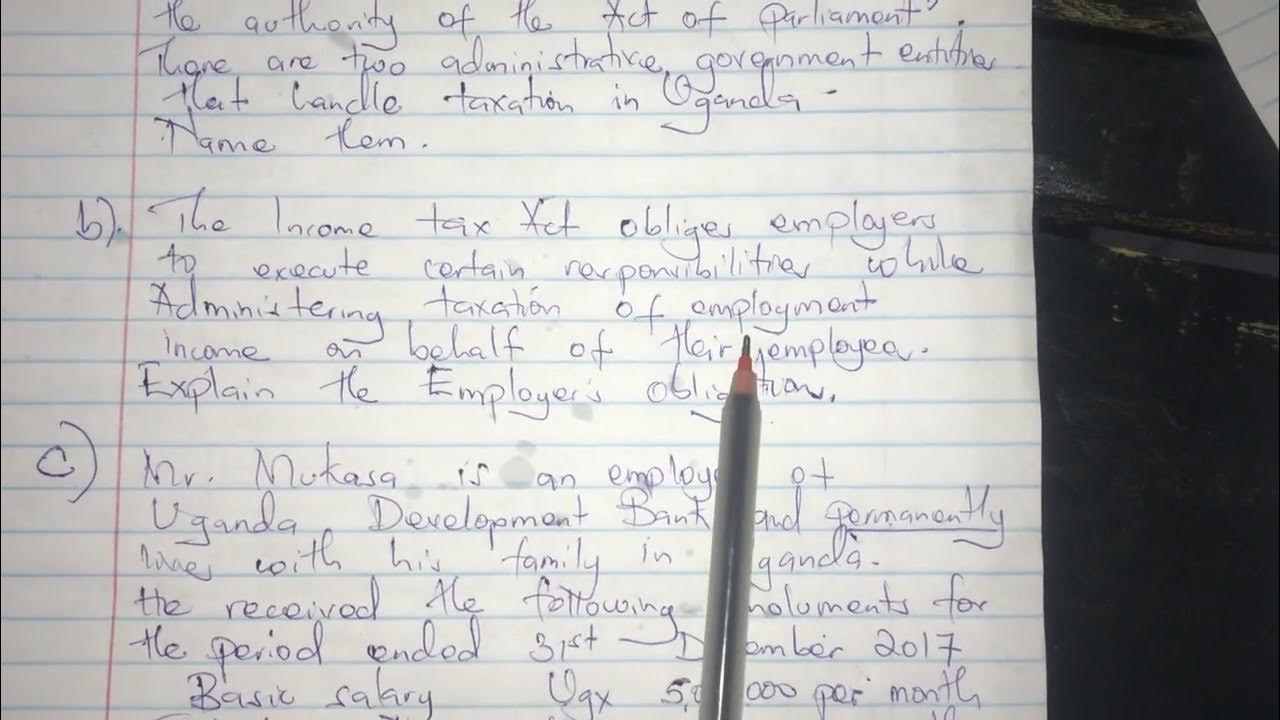 the authority of the Act of Parliament".
There are two administrative government entities
that handle taxation in Uganda.
Name them.
b). The Income tax Act obliges employers
to execute certain responsibilities while
Administering taxation of employment
income on behalf of their employee.
Explain the Employer's
c) Mr. Mukasa is an of
Uganda Development Bank and permanently
lives with his family in
He received the following for
the period ended 31st 2017
Basic salary Ugx per month